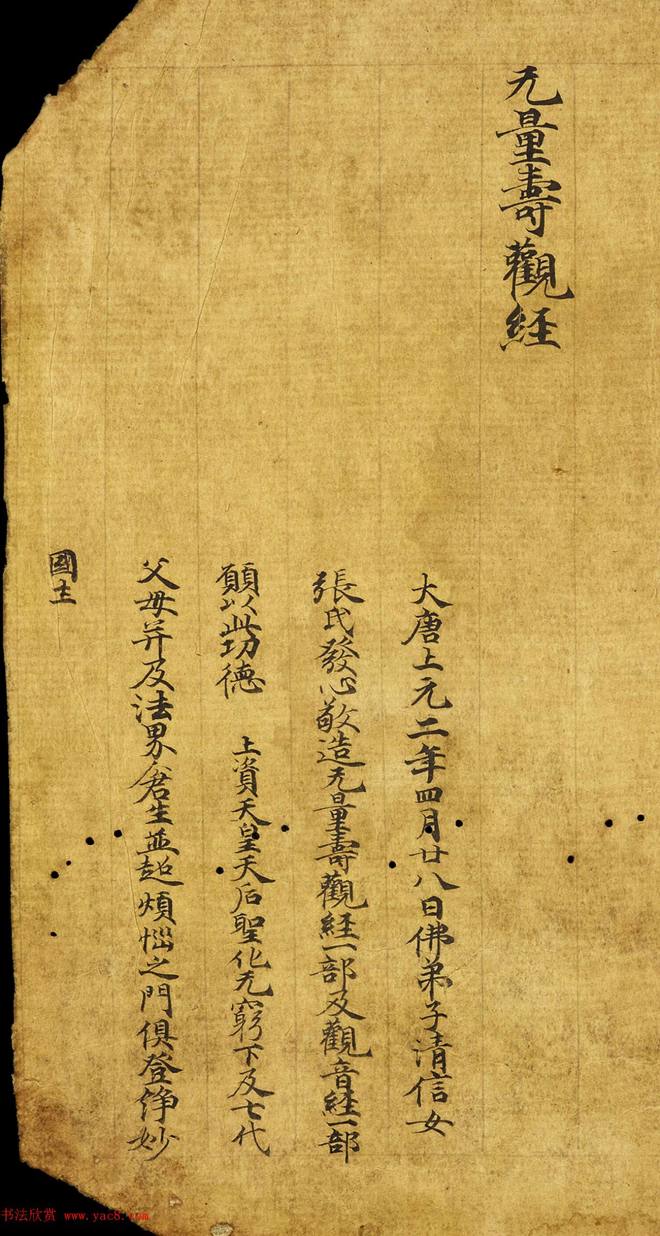 无量壽觀経
大唐上元二年四月廿八日佛弟子清信女
張氏發心敬造无量壽觀経一部及觀音経一部
願以此功德 上資天皇天后聖化无窮下及七代
父母并及法界倉生並超煩惱之門俱登淨妙
國土
书法欣赏 www.yac8.com